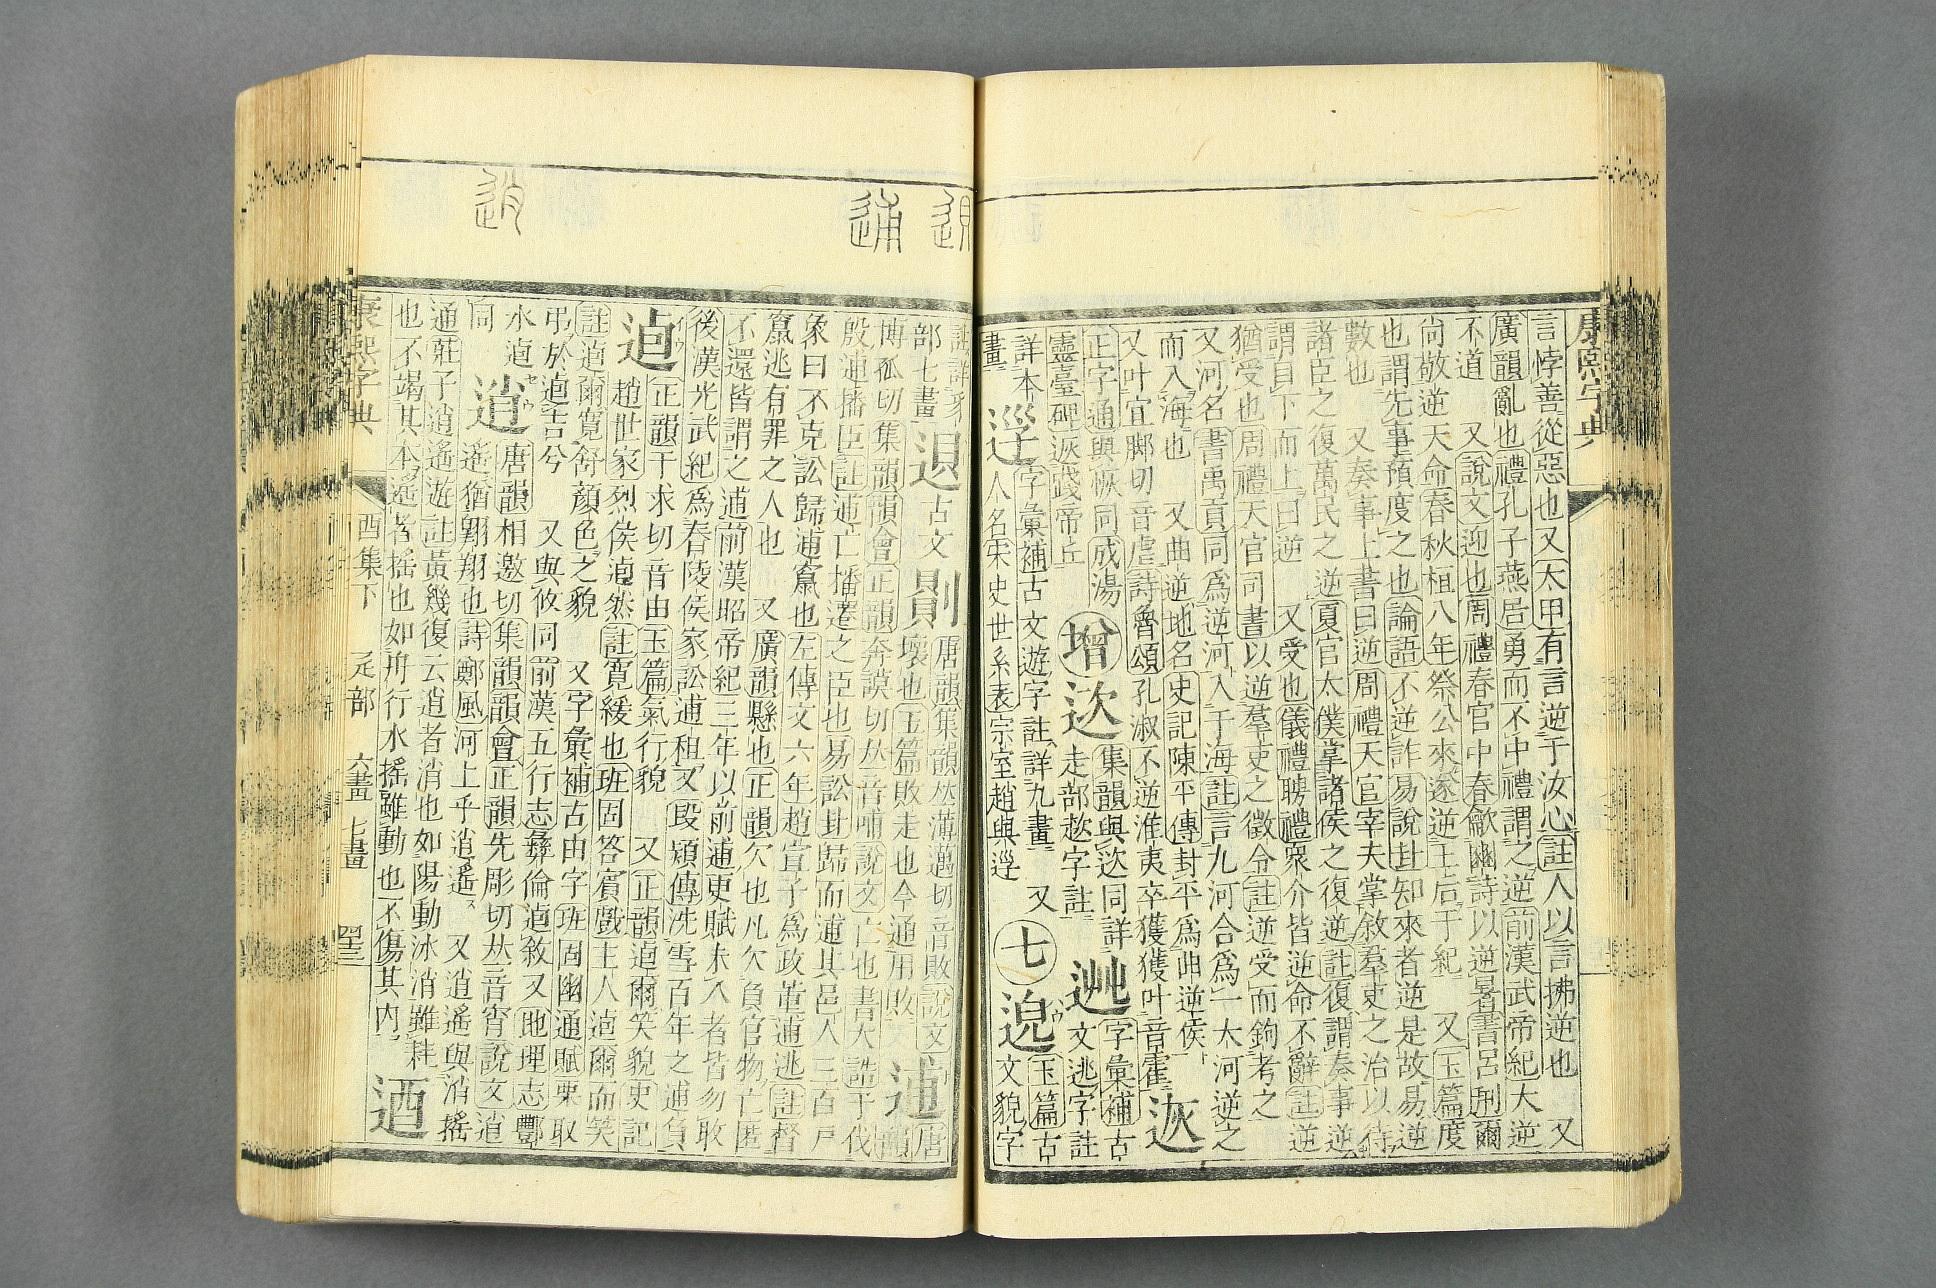 康熙字典
言悖善從惡也又太甲有言逆于汝心註人以言拂逆也　又
廣韻亂也禮孔子燕居勇而不中禮謂之逆前漢武帝紀大逆
不道　又說文迎也周禮春官中春龡豳詩以逆暑書呂刑爾
尚敬逆天命春秋桓八年祭公來遂逆王后于紀　又玉篇度
也謂先事預度之也論語不逆詐易說卦知來者逆是故易逆
數也　又奏事上書曰逆周禮天官宰夫掌敘羣吏之治以待
諸臣之復萬民之逆夏官太僕掌諸侯之復逆註復謂奏事逆
謂自下而上曰逆　又受也儀禮聘禮衆介皆逆命不辭註逆
猶受也周禮天官司書以逆羣吏之徵令註逆受而鉤考之
又河名書禹貢同爲逆河入于海註言九河合爲一大河逆之
而入海也　又曲逆地名史記陳平傳封平爲曲逆侯
又叶宜脚切音虐詩魯頌孔淑不逆淮夷卒獲獲叶音霍
正字通與恢同成湯
靈臺碑踐帝丘
增
集韻與同詳
走部趑字註
字彙補古
文逃字註
詳本
畫
字彙補古文遊字註詳九畫　又
人名宋史世系表宗室趙與
七
玉篇古
文貌字
註詳豸
部七畫
退
古文
唐韻集韻𠀤薄邁切音敗說文
壞也玉篇敗走也今通用敗
逋
唐
博孤切集韻韻會正韻奔謨切𠀤音晡說文亡也書大誥于伐
殷逋播臣註逋亡播遷之臣也易訟卦歸而逋其邑人三百戸
象曰不克訟歸逋竄也左傳文六年趙宣子爲政董逋逃註督
竄逃有罪之人也　又廣韻懸也正韻欠也凡欠負官物亡匿
不還皆謂之逋前漢昭帝紀三年以前逋更賦未入者皆勿收
後漢光武紀爲舂陵侯家訟逋租又段熲傳洗雪百年之逋負
逌
正韻于求切音由玉篇氣行貌　又正韻逌爾笑貌史記
趙世家烈侯逌然註寬緩也班固答賓戲主人逌爾而笑
註逌爾寬舒顏色之貌　又字彙補古由字班固幽通賦栗取
弔於逌吉兮　又與攸同前漢五行志彝倫逌敘又地理志酆
水逌
同
逍
唐韻相邀切集韻韻會正韻先彫切𠀤音宵說文逍
遙猶翺翔也詩鄭風河上乎逍遙　又逍遙與消搖
通莊子逍遙遊註黃幾復云逍者消也如陽動冰消雖耗
也不竭其本遙者搖也如舟行水搖雖動也不傷其內
逎
康熙字典
酉集下
辵部
六畫 七畫